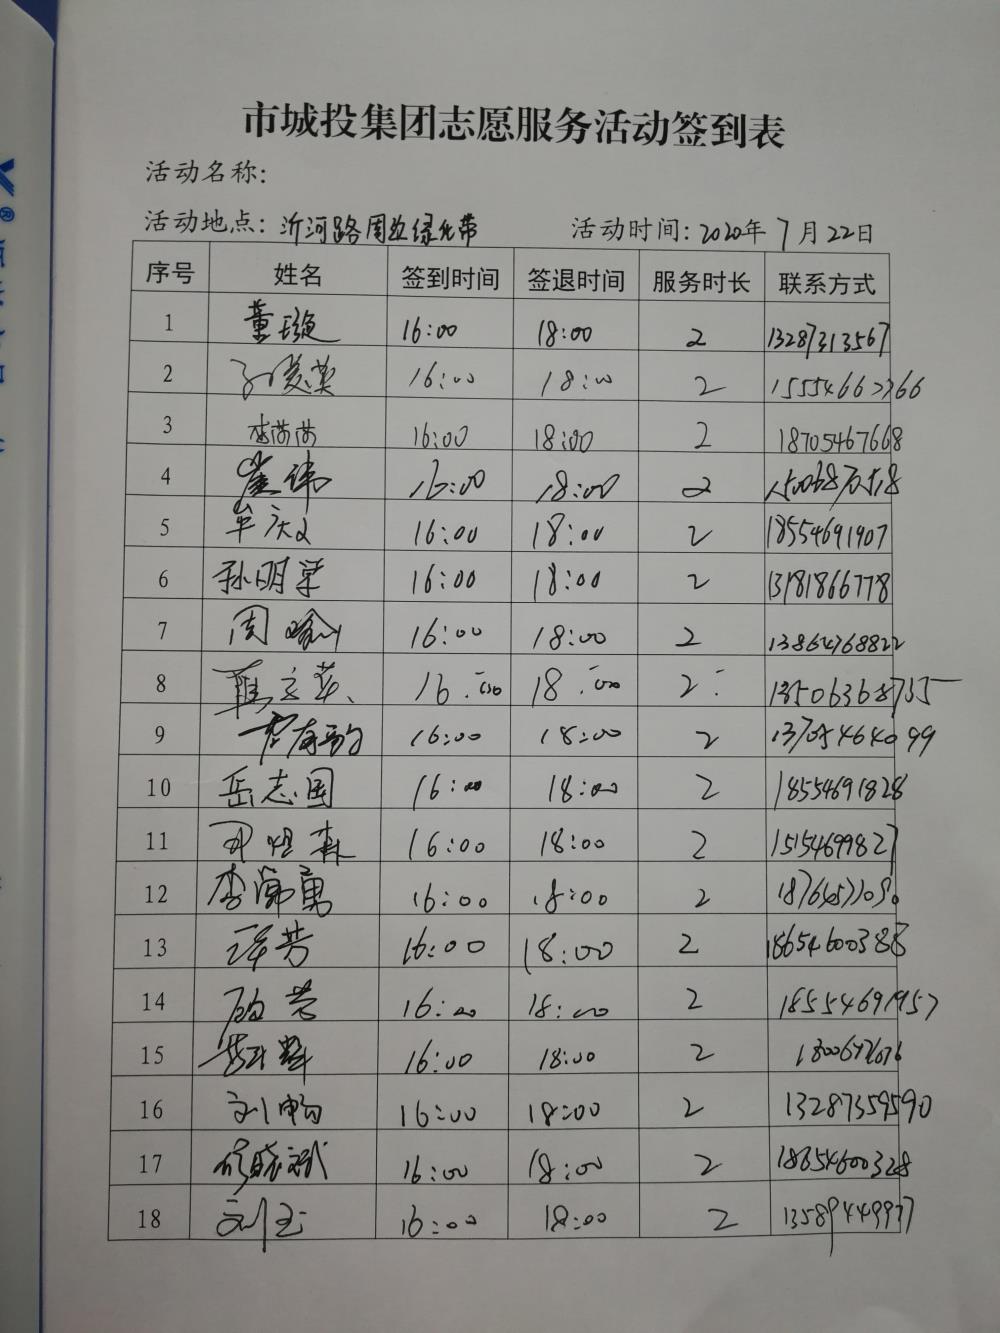 市城投集团志愿服务活动签到表
活动名称:
活动地点: 沂河路周边绿化带 活动时间: 2020年 7月 22日
序号 姓名 签到时间 签退时间 服务时长 联系方式
1 董璇 16:00 18:00 2 13287313567
2 16:00 18:00 2
3 李苘苘 16:00 18:00 2 18705467668
4 崔伟 16:00 18:00 2 15006870518
5 牟庆文 16:00 18:00 2 18554691907
6 孙明荣 16:00 18:00 2 13181866778
7 周瑜 16:00 18:00 2 13864768822
8 16:00 18:00 2 13506368735
9 16:00 18:00 2 13705464099
10 岳志国 16:00 18:00 2 18554691828
11 16:00 18:00 2 15154699827
12 16:00 18:00 2
13 16:00 18:00 2 18654600388
14 16:00 18:00 2 18554691957
15 16:00 18:00 2
16 刘畅 16:00 18:00 2 13287359590
17 16:00 18:00 2 18654600328
18 刘玉 16:00 18:00 2 13589449977